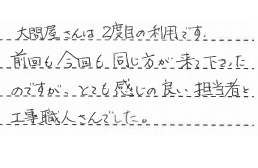 大問屋さんは2度目の利用です。
前回も今回も同じ方が来て下さった
のですが、とても感じの良い担当者と
工事職人さんでした。